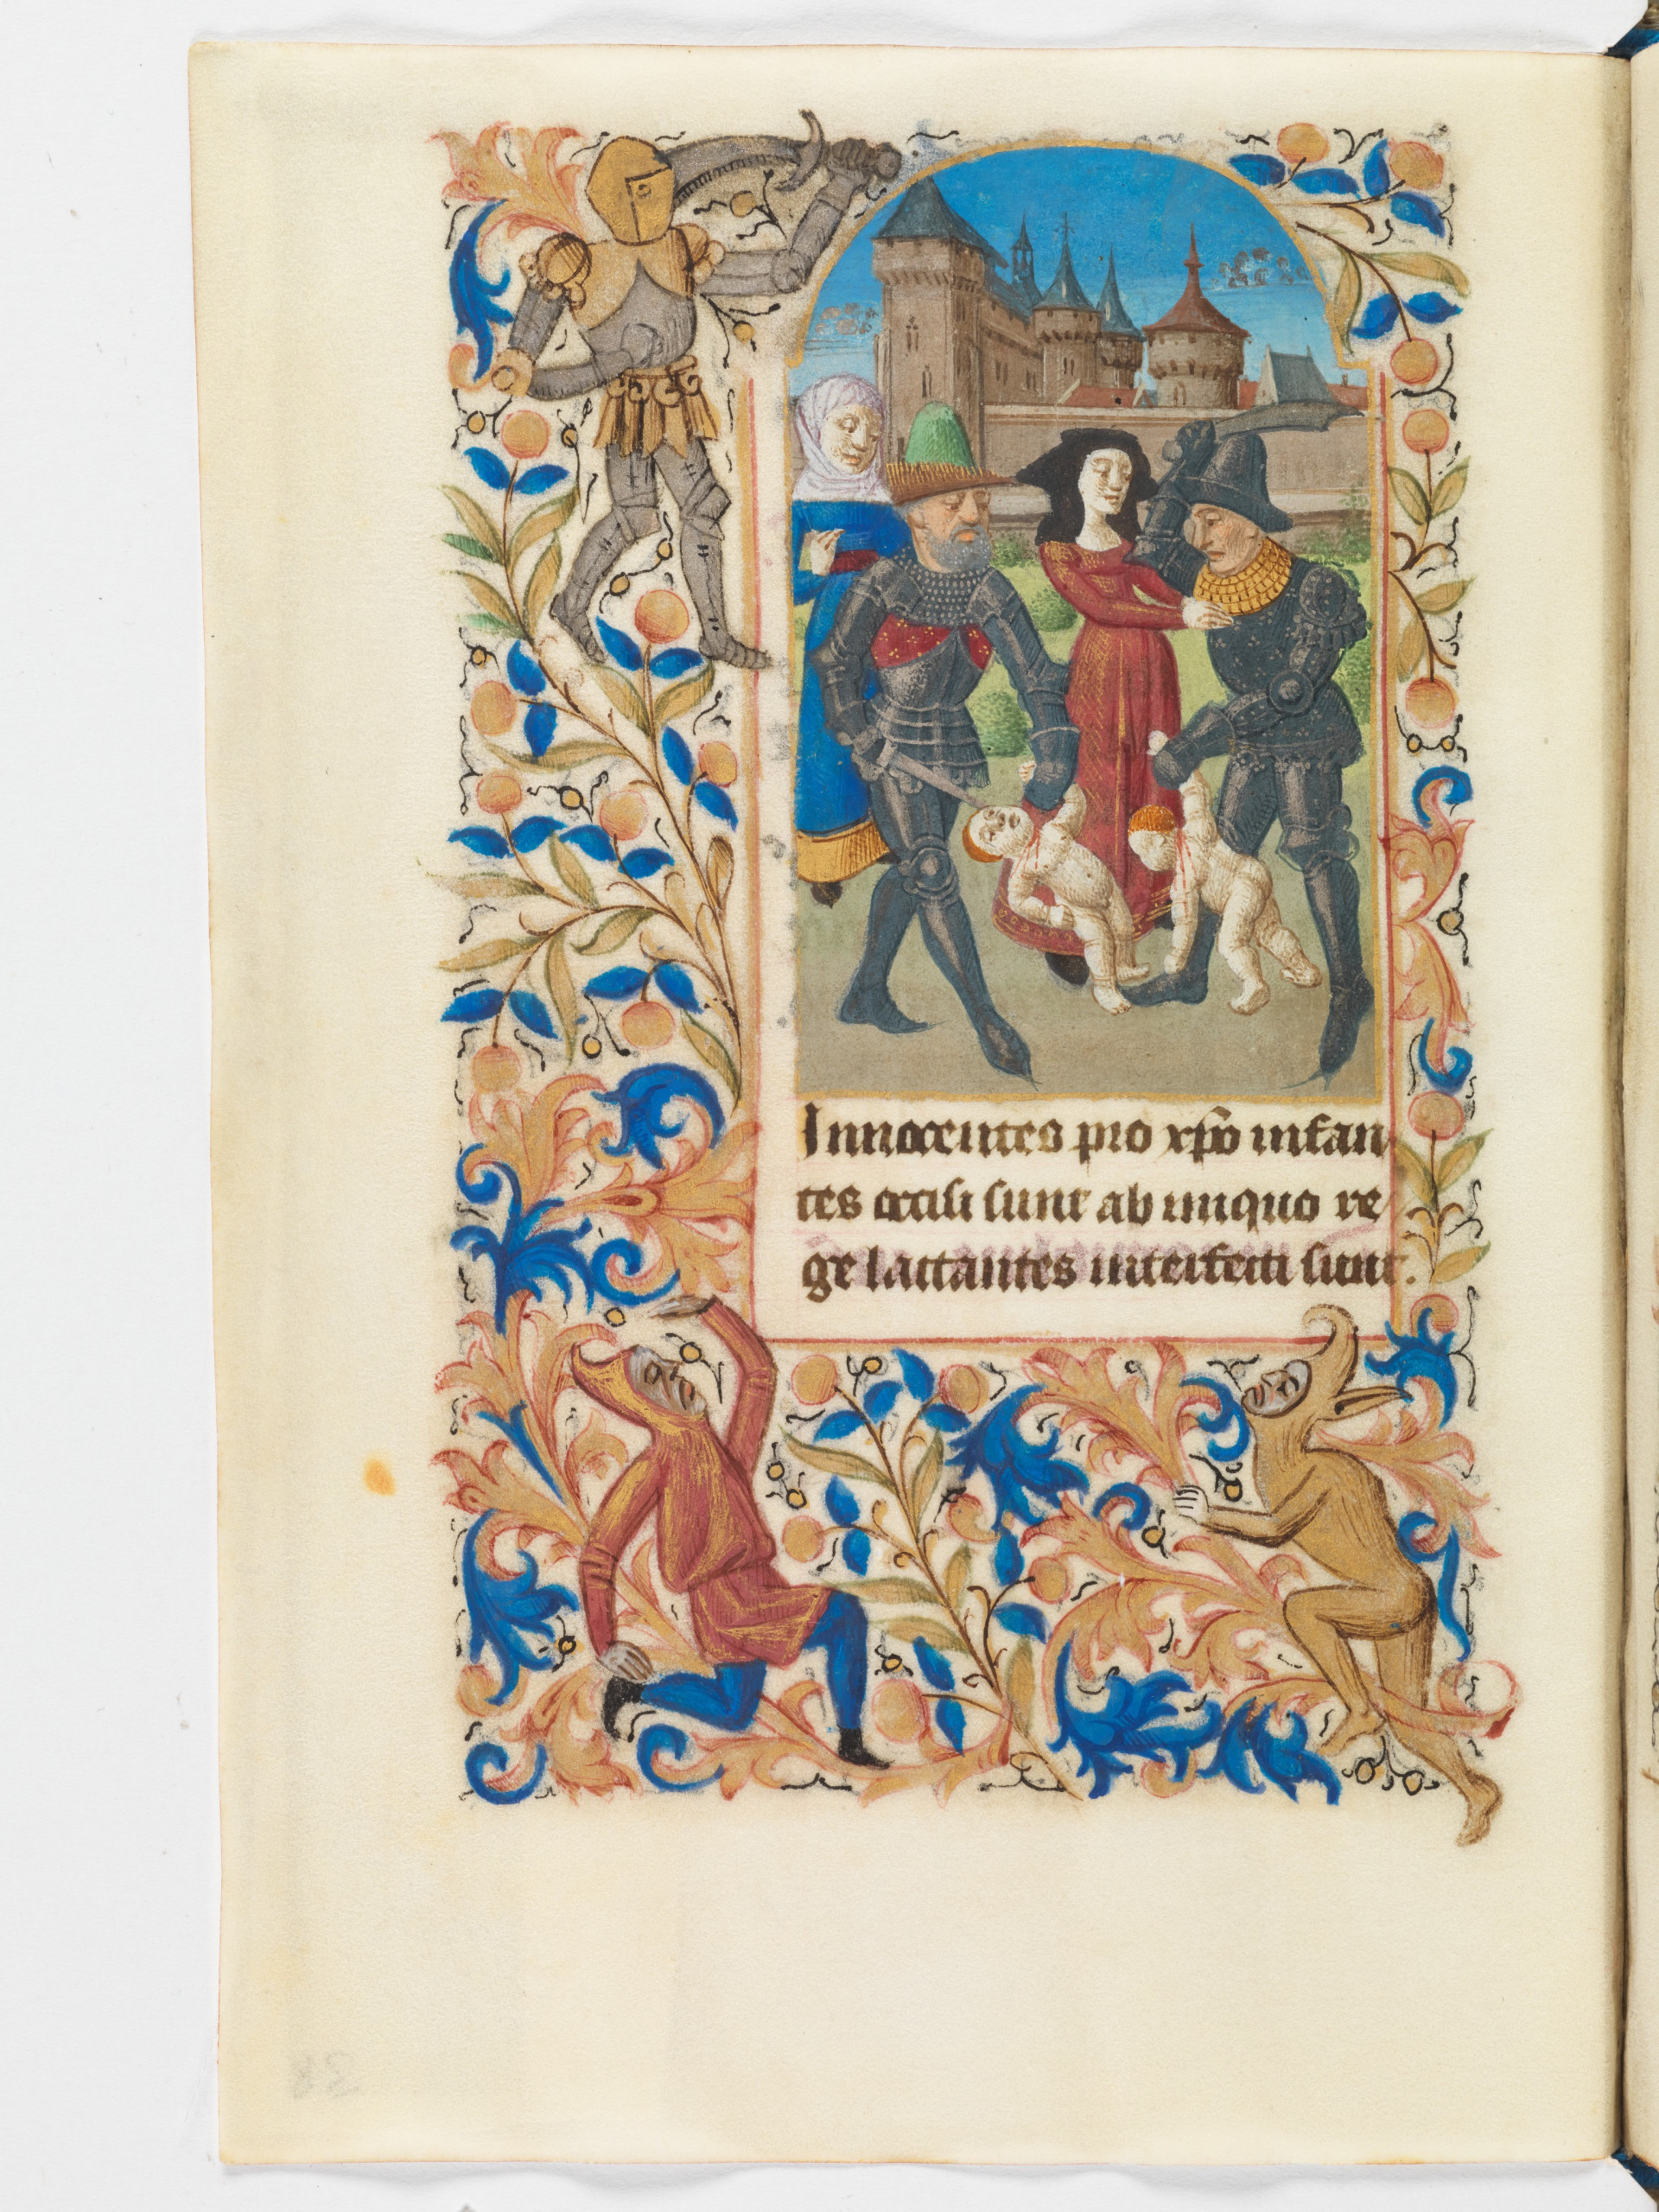 Innocentes pro xpo infan
tes occisi sunt ab iniquo re
ge lactantes interfecti sunt.